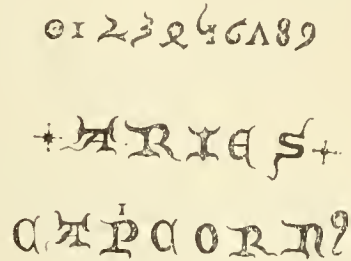 0 1 2 3 4 5 6 7 8 9
+ ARIES +
CAPͥCORNꝰ